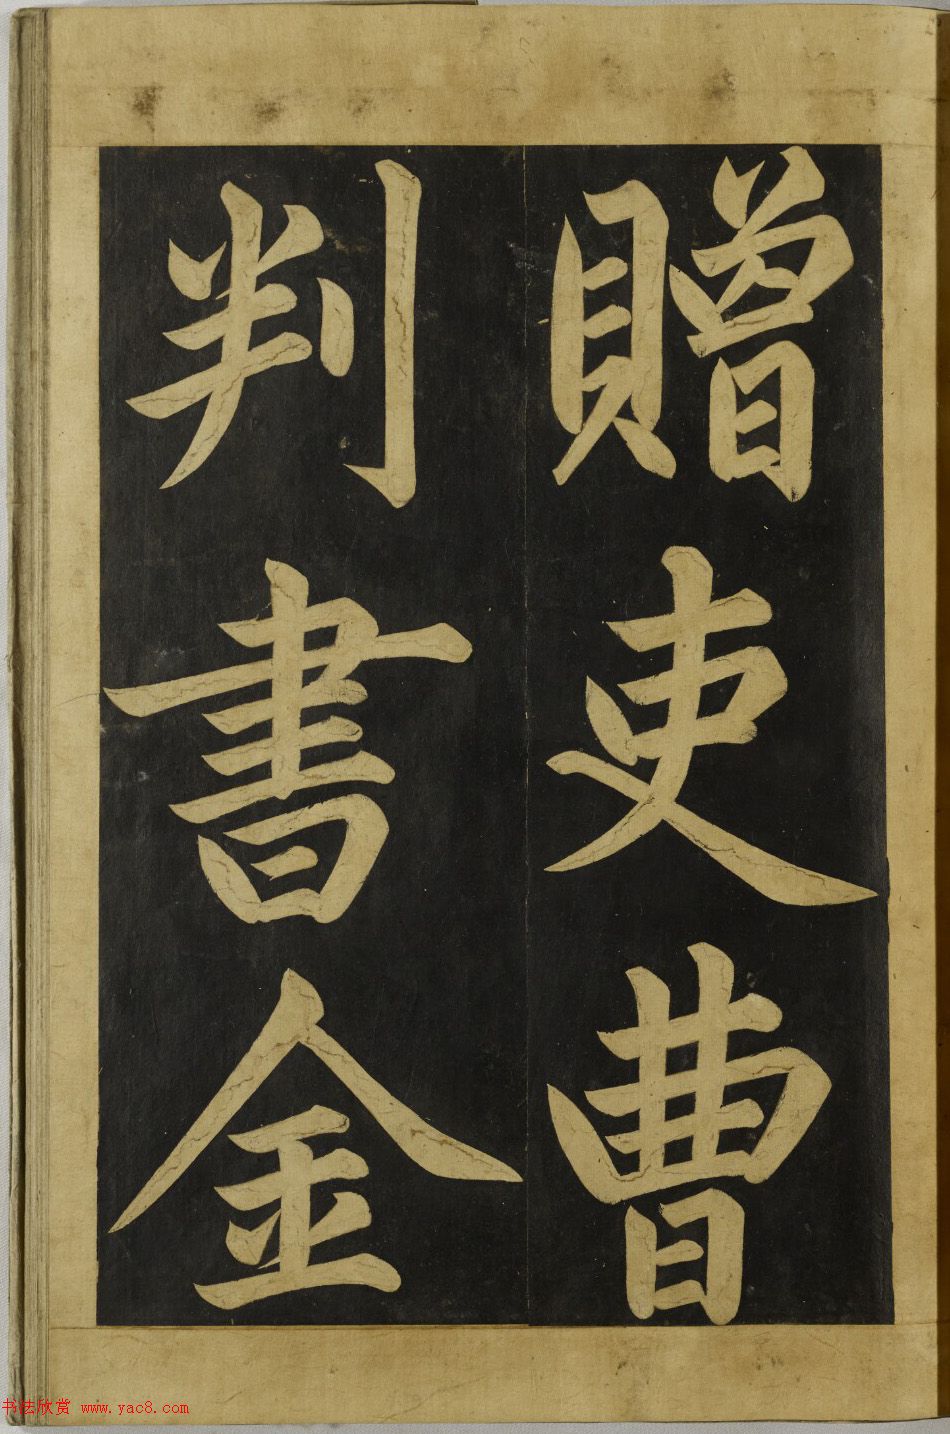 贈吏曹
判書金
书法欣赏 www.yac8.com